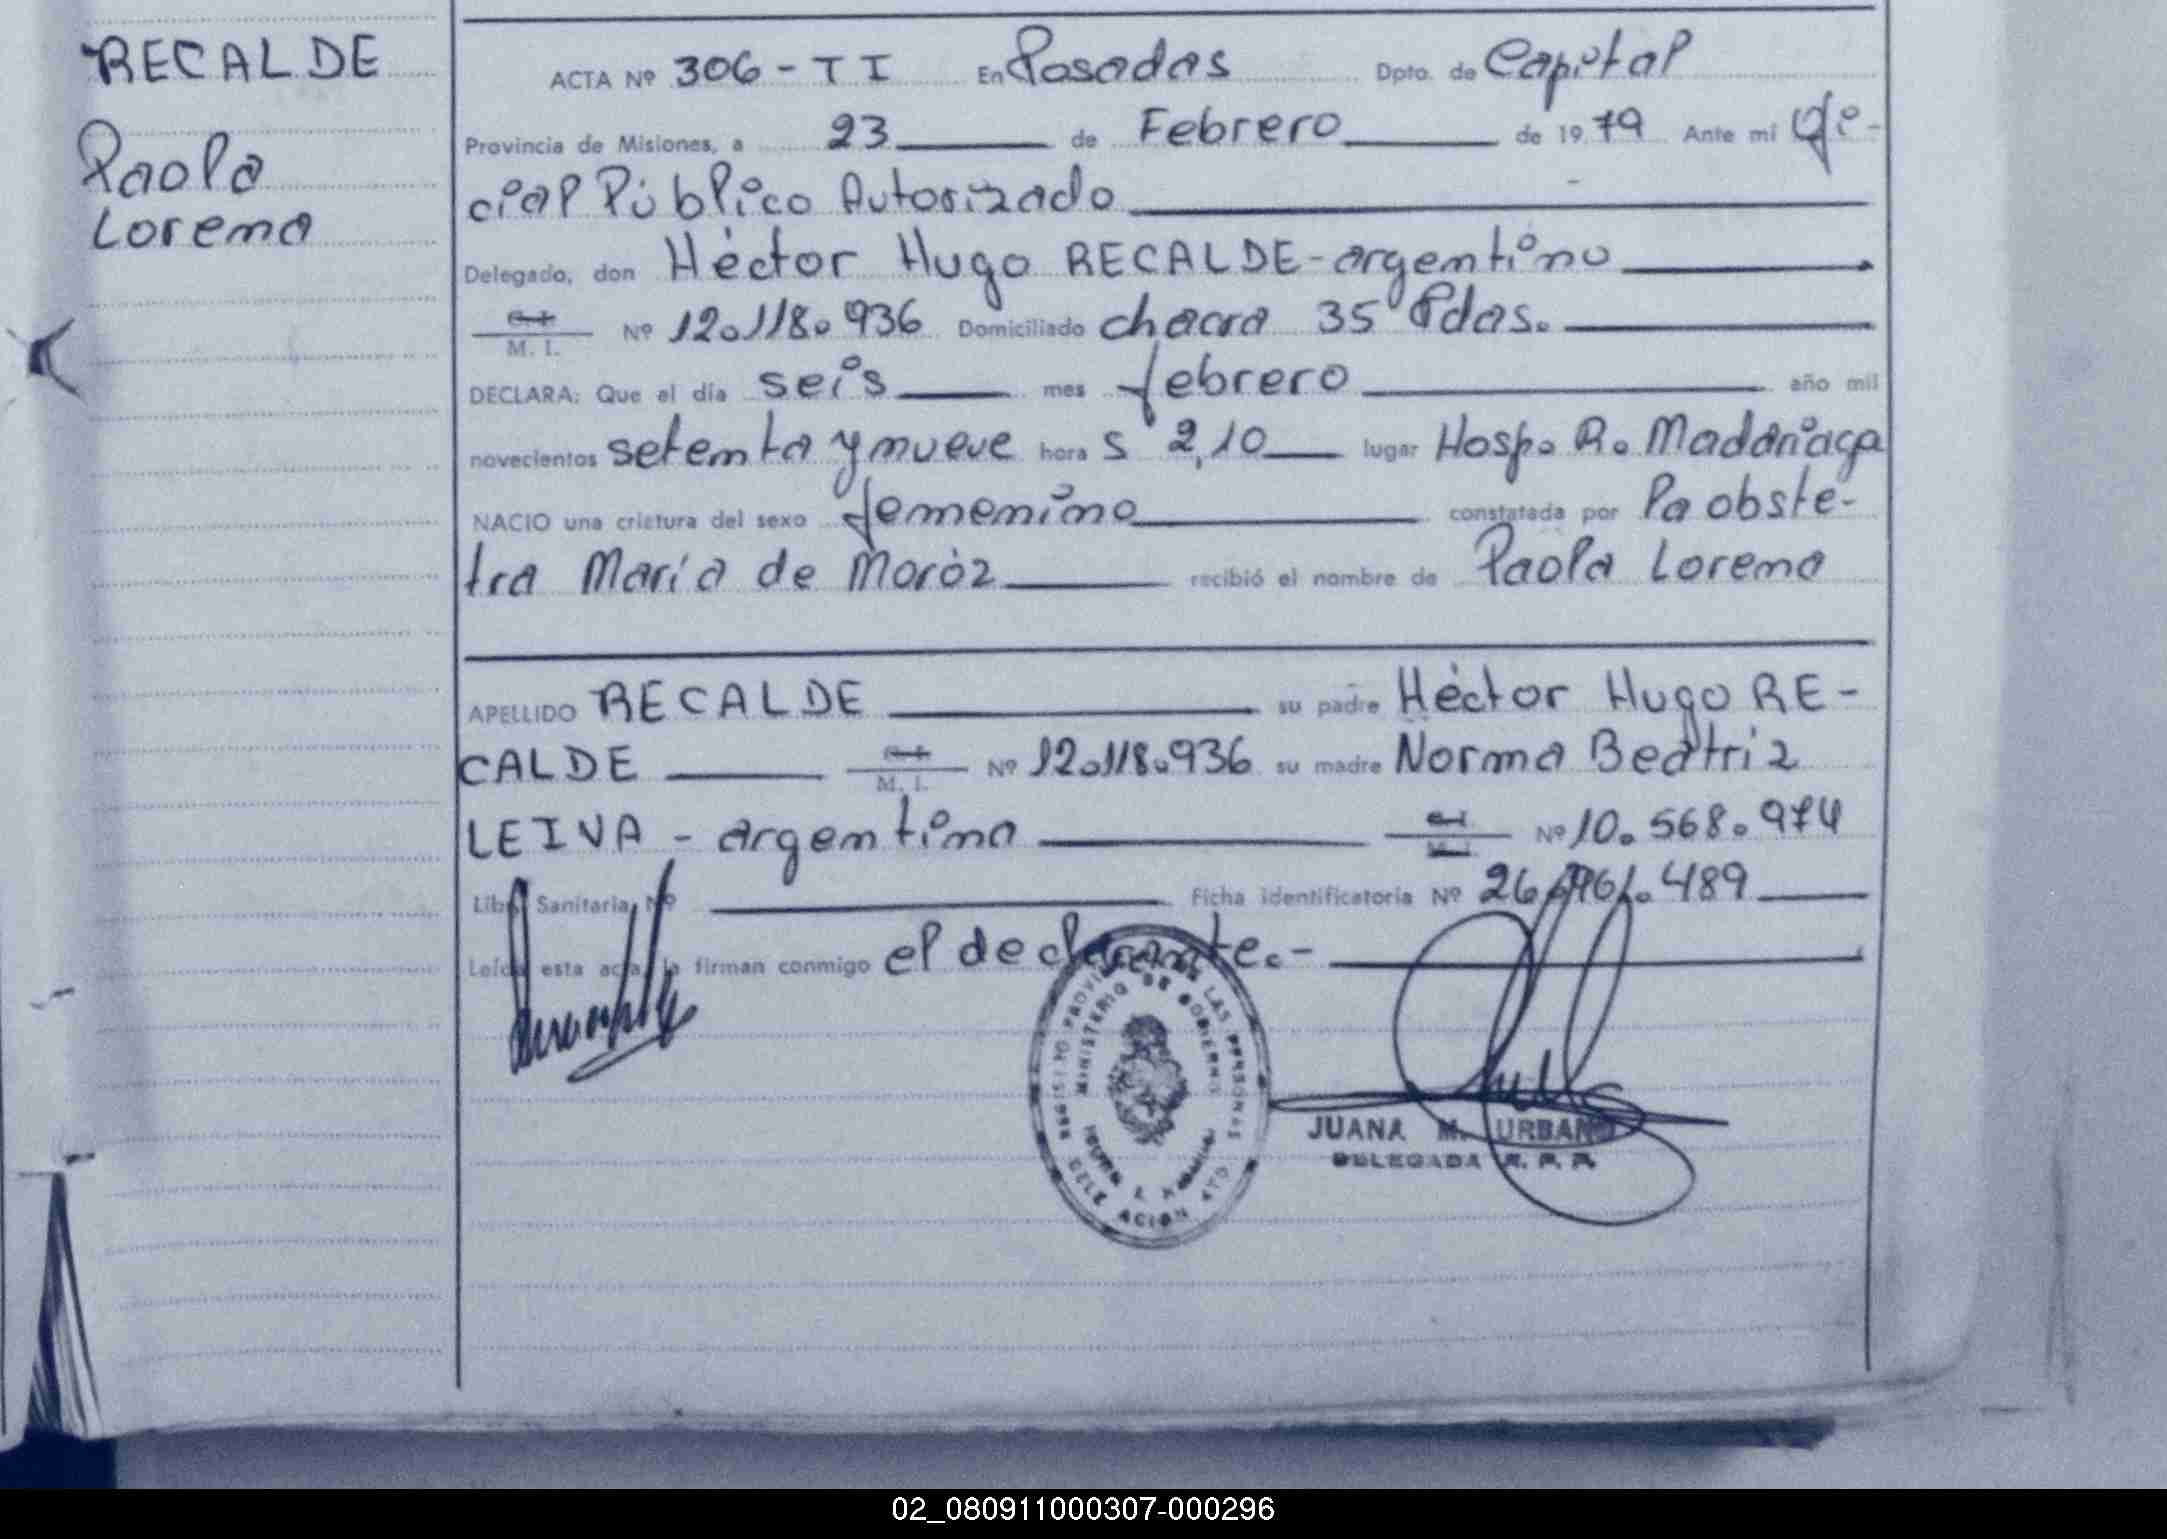 RECALDE
Paola
Lorena
ACTA Nº 306 - T I En Posadas Dpto. de Capital
Provincia de Misiones, a 23 de Febrero de 1979 Ante mi Ofi-
cial Público Autorizado
Delegado, don Héctor Hugo RECALDE - argentino
C.I. M. I. Nº 12.118.936 Domiciliado chacra 35 Pdas.
DECLARA: Que el día seis mes febrero año mil
novecientos setenta y nueve hora s 2,10 lugar Hosp. R. Madariaga
NACIO una criatura del sexo femenino constatada por la obste-
tra María de Moróz recibió el nombre de Paola Lorena
APELLIDO RECALDE su padre Héctor Hugo RE-
CALDE M. I. Nº 12.118.936 su madre Norma Beatriz
LEIVA - argentina Nº 10.568.974
Libr. Sanitaria Nº Ficha identificatoria Nº 26. 489
Leída esta acta, la firman conmigo el declarante.-
MINISTERIO DE GOBIERNO
LAS PERSONAS
JUANA M. URBANO
DELEGADA R. P. P.
02_080911000307-000296